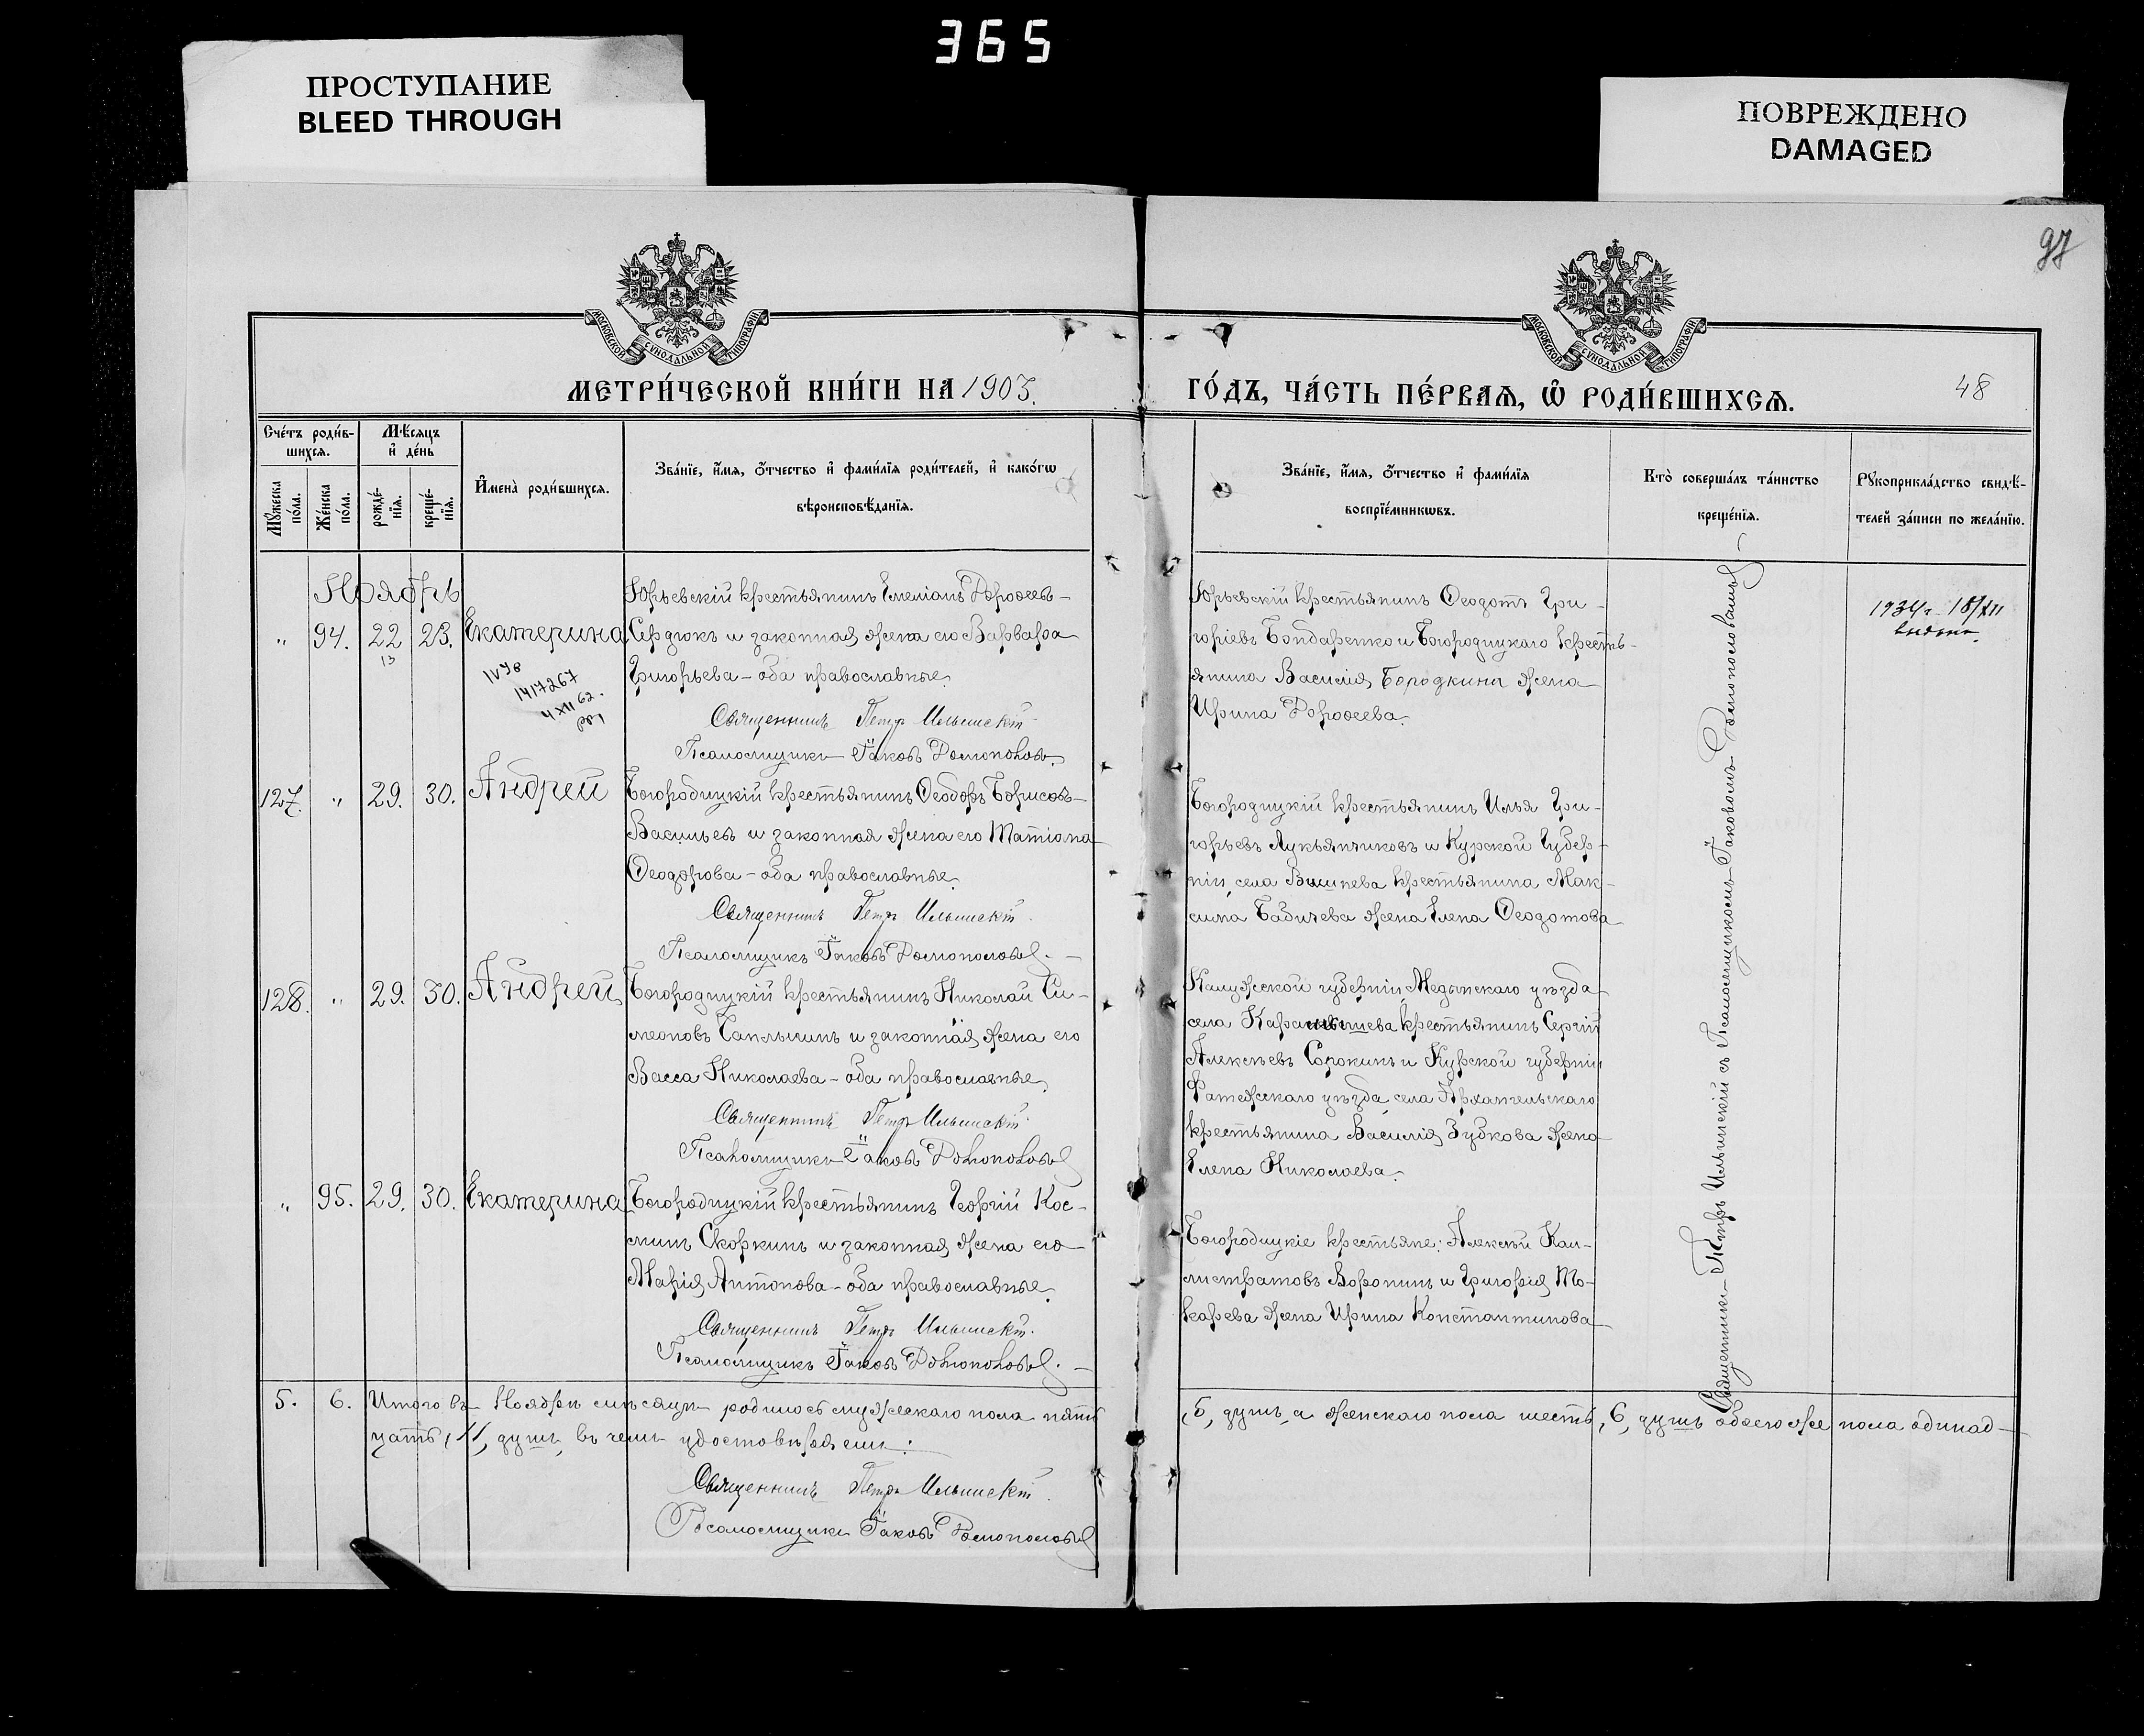 365
ПРОСТУПАНИЕ
BLEED THROUGH
ПОВРЕЖДЕНО
DAMAGED
97
МОСКОВСКОЙ СѴНОДАЛЬНОЙ ТИПОГРАФІИ
МОСКОВСКОЙ СѴНОДАЛЬНОЙ ТИПОГРАФІИ
МЕТРИ́ЧЕСКОЙ КНИ́ГИ НА 1903.
ГО́ДЪ, ЧА́СТЬ ПЕ́РВАЯ, Ѽ РОДИ́ВШИХСЯ.
48
Сче́тъ роди́в-
шихся.
Мѣ́сяцъ
и҆ де́нь
Мꙋ́жеска по́ла.
Же́нска по́ла.
рожде́-
нїя.
креще́-
нїя.
И҆мена̀ роди́вшихся.
Зва́нїе, и҆́мя, ѻ҆́тчество и҆ фами́лїя роди́телей, и҆ како́гѡ
вѣроисповѣ́данїя.
Зва́нїе, и҆́мя, ѻ҆́тчество и҆ фами́лїя
воспрїе́мникѡвъ.
Кто̀ соверша́лъ та́инство
креще́нїя.
Рꙋкоприкла́дство свидѣ́-
телей за́писи по жела́нїю.
Ноябрь
„ 94. 22 23. Екатерина
13
1417267
4 XII 62.
Юрьевскій крестьянинъ Емеліанъ Дороѳеевъ
Сердюкъ и законная жена его Варвара
Григорьева - оба православные.
Священникъ Петръ Ильинскій
Псаломщикъ Іаковъ Домополовъ
Юрьевскій крестьянинъ Ѳеодотъ Гри-
горіевъ Бондаренко и Богородицкаго кресть-
янина Василія Бородкина жена
Ирина Дороѳеева.
1934 г. 18/XII
выдана.
127. „ 29. 30. Андрей
Богородицкій крестьянинъ Ѳеодоръ Борисовъ
Васильевъ и законная жена его Татіана
Ѳеодорова - оба православные.
Священникъ Петръ Ильинскій
Псаломщикъ Іаковъ Домополовъ.
Богородицкій крестьянинъ Илья Гри-
горьевъ Лукьянчиковъ и Курской Губер-
ніи села Вишнева крестьянина Мак-
сима Бабичева жена Елена Ѳеодотова
128. „ 29. 30. Андрей
Богородицкій крестьянинъ Николай Си-
меоновъ Чаплыгинъ и законная жена его
Васса Николаева - оба православные.
Священникъ Петръ Ильинскій
Псаломщикъ Іаковъ Домополовъ
Калужской губерніи Медынскаго уѣзда
села крестьянинъ Сергій
Алексѣевъ Сорокинъ и Курской губерніи
Фатежскаго уѣзда села Архангельскаго
крестьянина Василія Зубкова жена
Елена Николаева.
„ 95. 29. 30. Екатерина
Богородицкій крестьянинъ Георгій Кос-
минъ Скоркинъ и законная жена его
Марія Антонова - оба православные.
Священникъ Петръ Ильинскій.
Псаломщикъ Іаковъ Домополовъ.
Богородицкіе крестьяне: Алексѣй Кал-
листратовъ Воронинъ и Григорія То-
карева жена Ирина Константинова
Священникъ Петръ Ильинскій съ Псаломщикомъ Іаковомъ Домополовымъ
5. 6. Итого въ Ноябрѣ мѣсяцѣ родилось мужескаго пола пять
, 5, душъ, а женскаго пола шесть, 6, душъ обоего же пола одинад-
цать, 11, душъ, въ чемъ удостовѣряемъ:
Священникъ Петръ Ильинскій.
Псаломщикъ Іаковъ Домополовъ